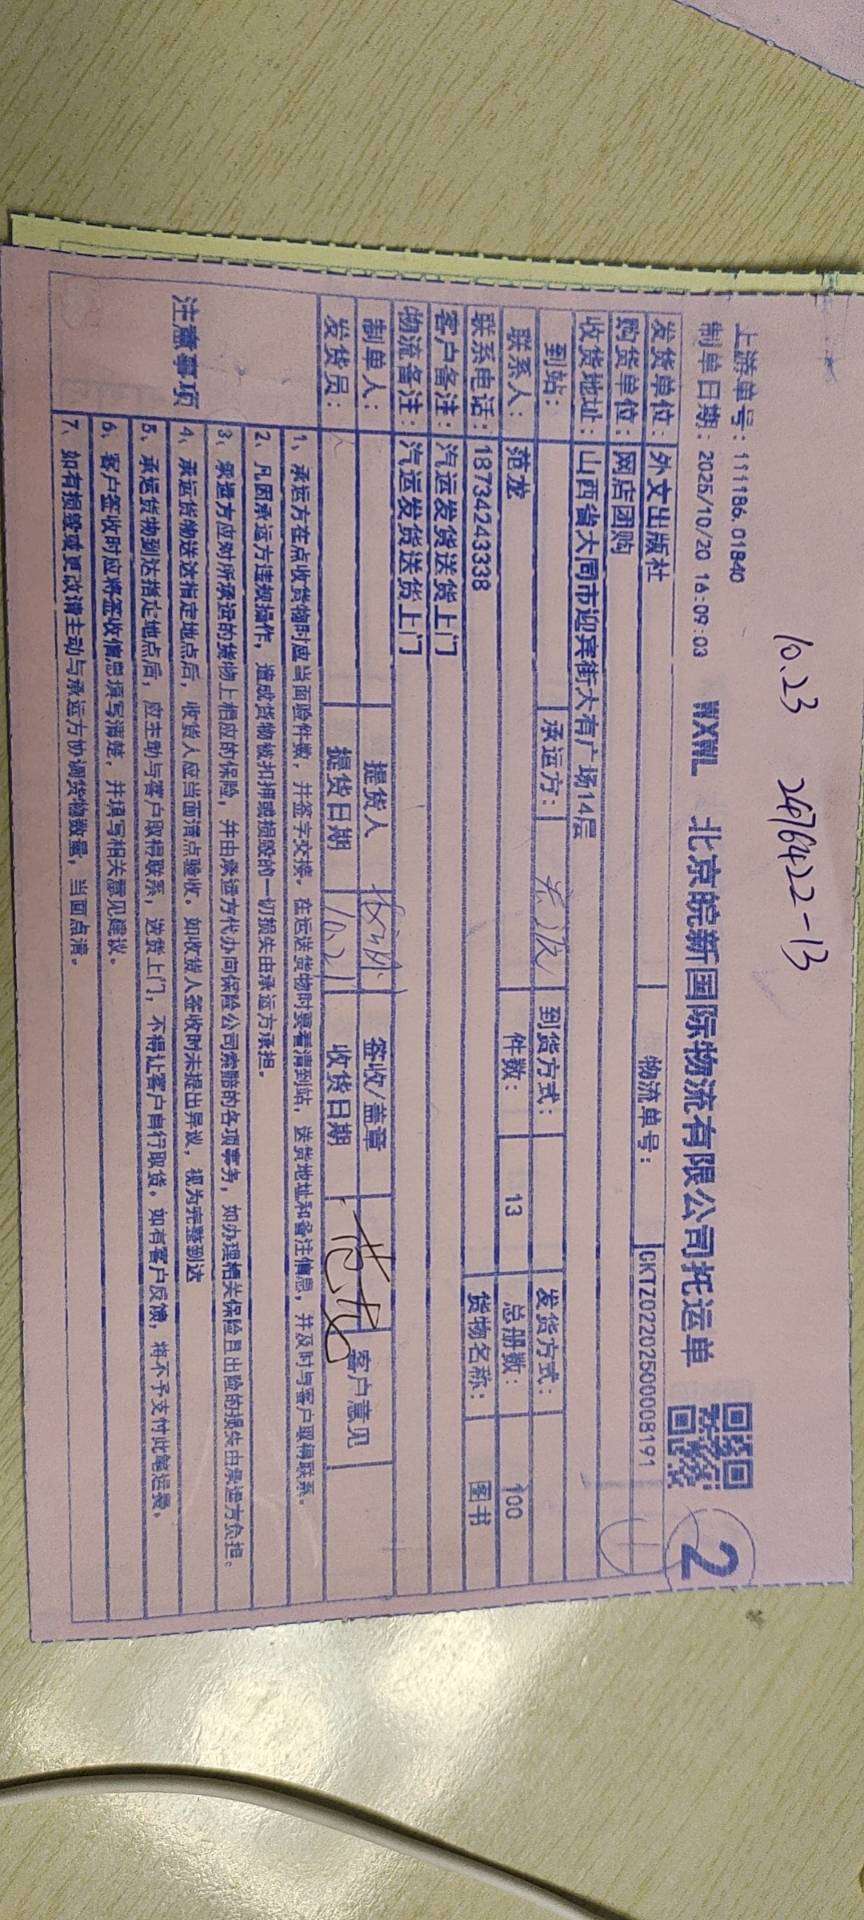 10.23 2476422-13
上游单号：111186.01840
制单日期：2025/10/20 16:09:03 WXWL 北京皖新国际物流有限公司托运单 2
发货单位：外文出版社 物流单号：CKTZ02202500008191
购货单位：网店团购
收货地址：山西省大同市迎宾街大有广场14层
到站： 承运方： 到货方式： 发货方式：
联系人：范龙 件数：13 总册数：100
联系电话：18734243338 货物名称：图书
客户备注：汽运发货送货上门
物流备注：汽运发货送货上门
制单人： 提货人 签收/盖章 范龙 客户意见
发货员： 提货日期 10.21 收货日期
注意事项
1、承运方在点收货物时应当面验件数，并签字交接。在运送货物时要看清到站，送货地址和备注信息，并及时与客户取得联系。
2、凡因承运方违规操作，造成货物被扣押或损毁的一切损失由承运方承担。
3、承运方应对所承运的货物上相应的保险，并由承运方代办向保险公司索赔的各项事务，如办理相关保险且出险的损失由承运方负担。
4、承运货物送达指定地点后，收货人应当面清点验收。如收货人签收时未提出异议，视为完整到达
5、承运货物到达指定地点后，应主动与客户取得联系，送货上门，不得让客户自行取货。如有客户反馈，将不予支付此笔运费。
6、客户签收时应将签收信息填写清楚，并填写相关意见建议。
7、如有损毁或更改请主动与承运方协调货物数量，当面点清。